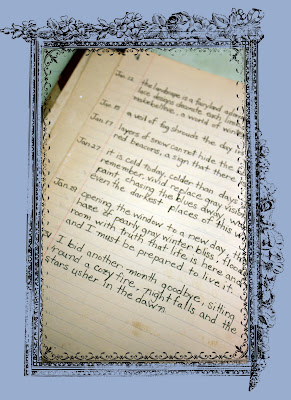 Jan 12 the landscape is a fairyland
lace designs decorate each
makebelieve, a world of
Jan 15 a veil of fog shrouds the day
Jan 17 layers of snow can not hide the
red beacons, a sign that there
Jan 27 it is cold today, colder than days
remember, vivid replace gray
paint, chasing the blues away,
even the darkest places of this
Jan 31 opening the window to a new day,
haze of pearly gray winter bliss
room with truth that life is here and
and I must be prepared to live it.
I bid another month goodbye, sitting
'round a cozy fire, night falls and the
stars usher in the dawn.